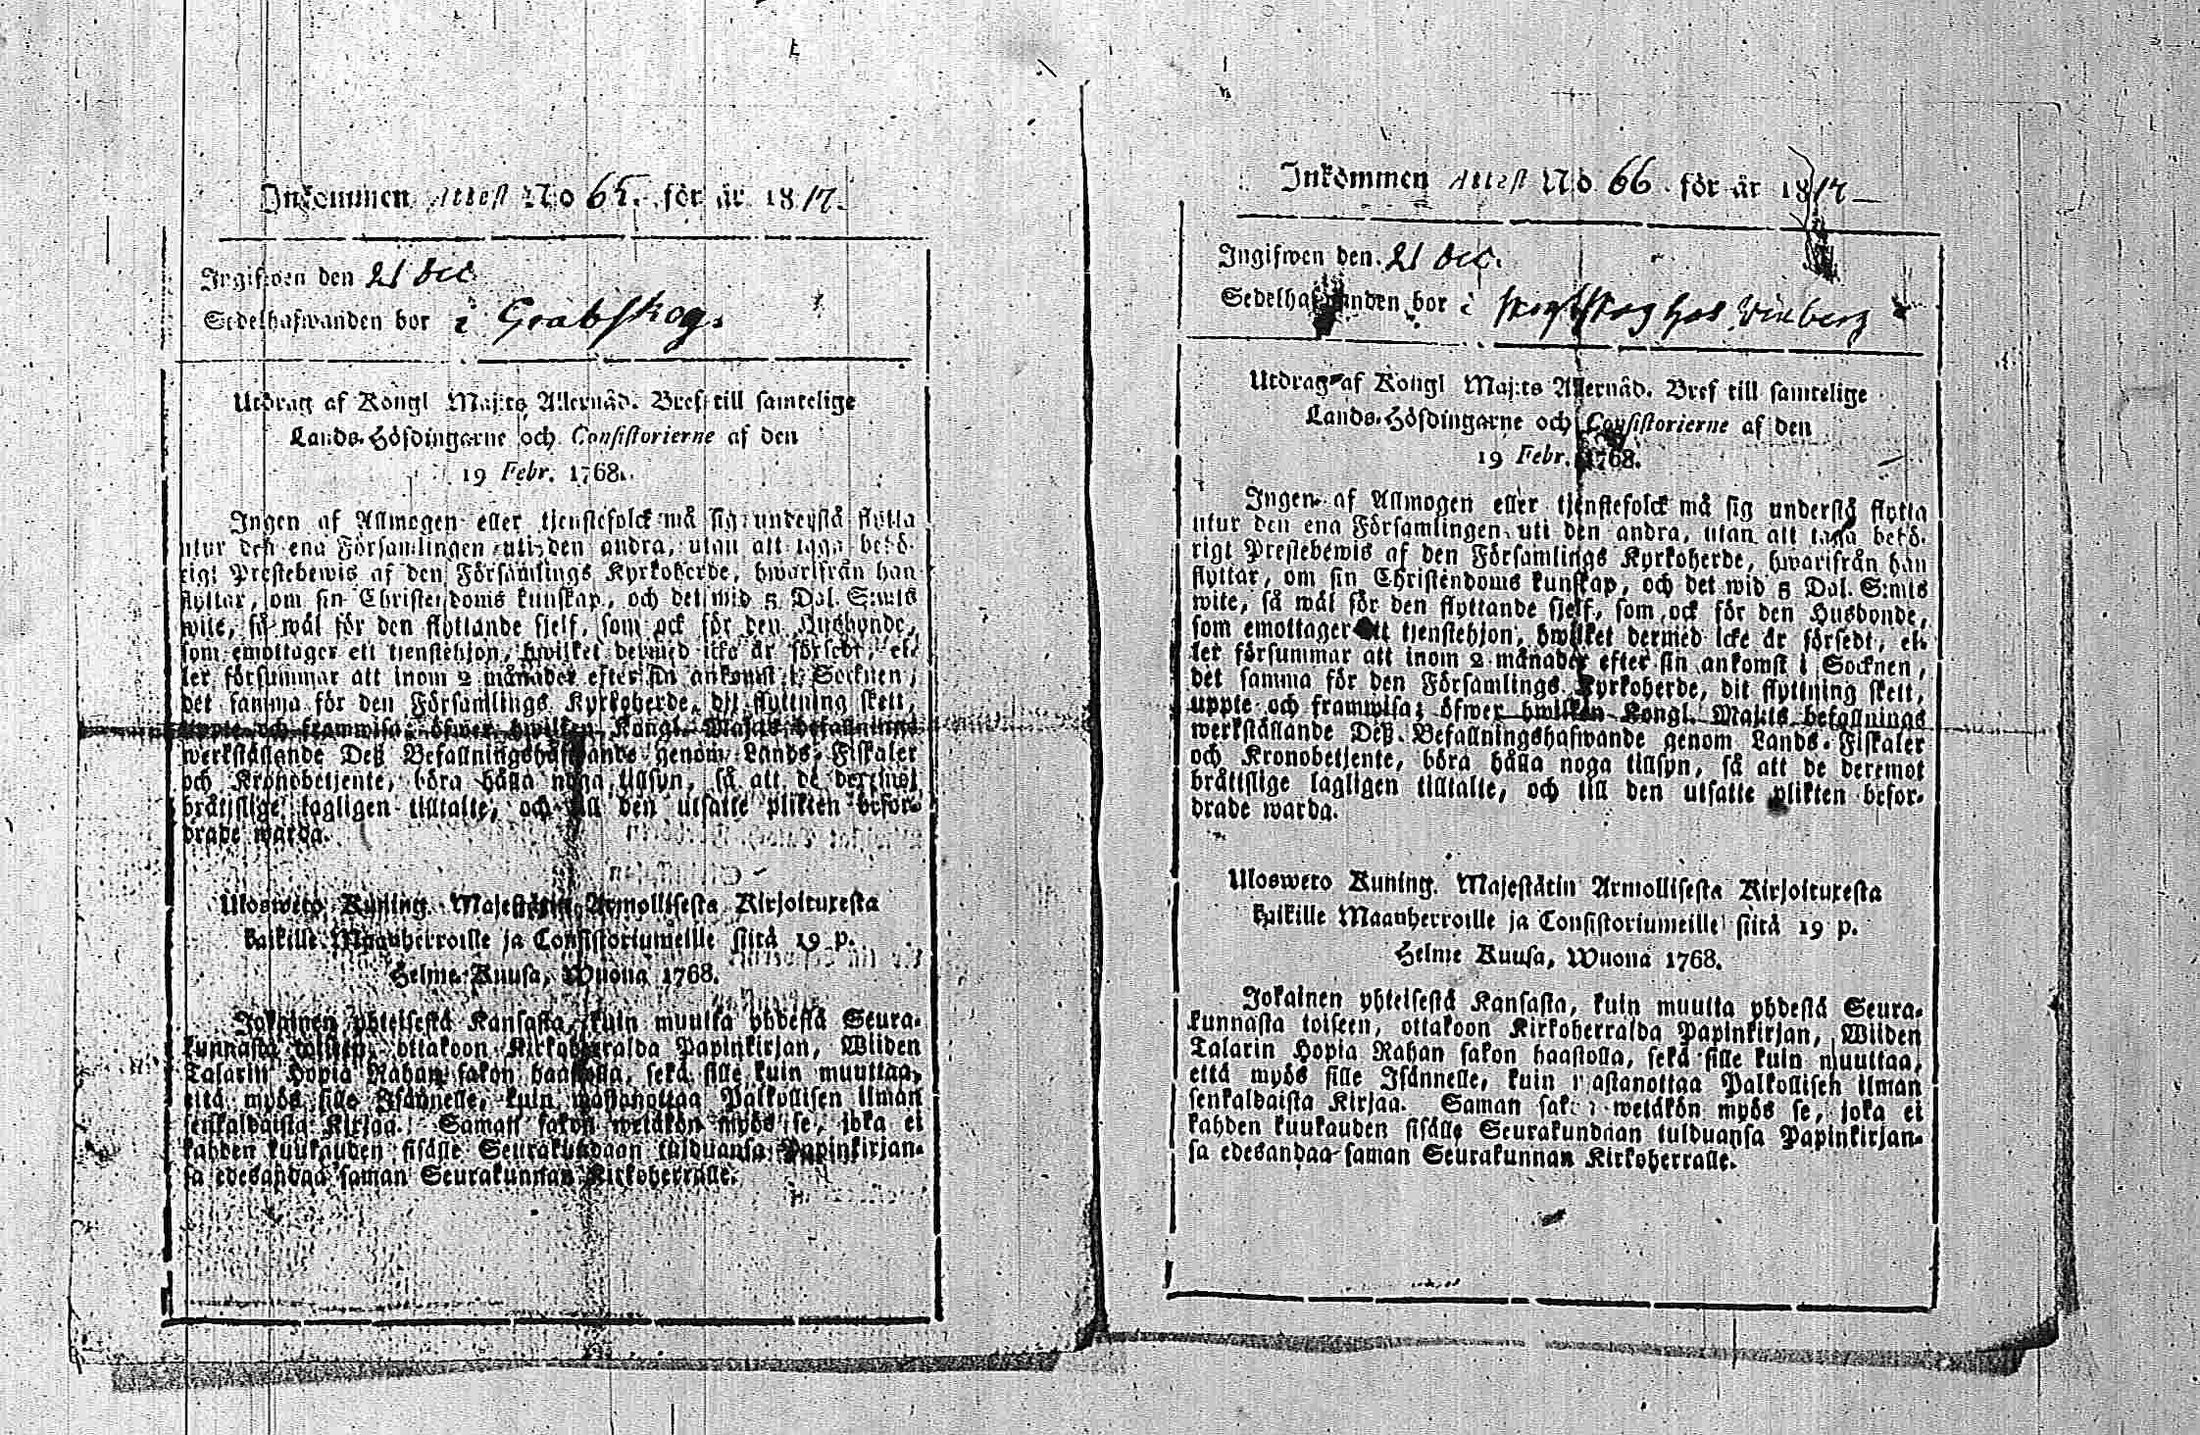 Inkommen Attest No 65. för år 1817.
Ingifwen den 21 Dec.
Sedelhafwanden bor i Grabskog.
Utdrag af Kongl Maj:ts Allernåd. Bref till samtelige
Lands-Höfdingarne och Consistorierne af den
19 Febr. 1768.
Ingen af Allmogen eller tjenstefolck må sig understå flytta
utur den ena Församlingen uti den andra, utan att taga behö-
rigt Prestebewis af den Församlings Kyrkoherde, hwarifrån han
flyttar, om sin Christendoms kunskap, och det wid 5 Dal. S:mts
wite, så wäl för den flyttande sjelf, som ock för den Husbonde,
som emottager ett tjenstehjon, hwilket dermed icke är försedt, el-
ler försummar att inom 2 månader efter sin ankomst i Socknen,
det samma för den Församlings Kyrkoherde, dit flyttning skett,
uppte och framwisa; öfwer hwilken Kongl. Maj:ts befallnings
werkställande Deß Befallningshafwande genom Lands-Fiskaler
och Kronobetjente, böra hålla noga tillsyn, så att de deremot
bråttslige lagligen tilltalte, och till den utsatte plikten befor-
drade warda.
Ulosweto Kuning. Majestätin Armollisesta Kirjoituxesta
kaikille Maanherroille ja Consistoriumeille siitä 19 p.
Helme Kuusa, Wuona 1768.
Jokainen yhteisestä Kansasta, kuin muutta yhdestä Seura-
kunnasta toiseen, ottakoon Kirkoherralda Papinkirjan, Wiiden
Talarin Hopia Rahan sakon haastolla, sekä sille kuin muuttaa,
että myös sille Isännelle, kuin wastanottaa Palkollisen ilman
senkaldaista Kirjaa. Saman sakon wetäkön myös se, joka ei
kahden kuukauden sisälle Seurakundaan tulduansa Papinkirjan-
sa edesandaa saman Seurakunnan Kirkoherralle.
Inkommen Attest No 66. för år 1817
Ingifwen den 21 Dec.
Sedelhafwanden bor i hos Winberg
Utdrag af Kongl Maj:ts Allernåd. Bref till samtelige
Lands-Höfdingarne och Consistorierne af den
19 Febr. 1768.
Ingen af Allmogen eller tjenstefolck må sig understå flytta
utur den ena Församlingen uti den andra, utan att taga behö-
rigt Prestebewis af den Församlings Kyrkoherde, hwarifrån han
flyttar, om sin Christendoms kunskap, och det wid 5 Dal. S:mts
wite, så wäl för den flyttande sjelf, som ock för den Husbonde,
som emottager ett tjenstehjon, hwilket dermed icke är försedt, el-
ler försummar att inom 2 månader efter sin ankomst i Socknen,
det samma för den Församlings Kyrkoherde, dit flyttning skett,
uppte och framwisa; öfwer hwilken Kongl. Maj:ts befallnings
werkställande Deß Befallningshafwande genom Lands-Fiskaler
och Kronobetjente, böra hålla noga tillsyn, så att de deremot
bråttslige lagligen tilltalte, och till den utsatte plikten befor-
drade warda.
Ulosweto Kuning. Majestätin Armollisesta Kirjoituxesta
kaikille Maanherroille ja Consistoriumeille siitä 19 p.
Helme Kuusa, Wuona 1768.
Jokainen yhteisestä Kansasta, kuin muutta yhdestä Seura-
kunnasta toiseen, ottakoon Kirkoherralda Papinkirjan, Wiiden
Talarin Hopia Rahan sakon haastolla, sekä sille kuin muuttaa,
että myös sille Isännelle, kuin wastanottaa Palkollisen ilman
senkaldaista Kirjaa. Saman sakon wetäkön myös se, joka ei
kahden kuukauden sisälle Seurakundaan tulduansa Papinkirjan-
sa edesandaa saman Seurakunnan Kirkoherralle.